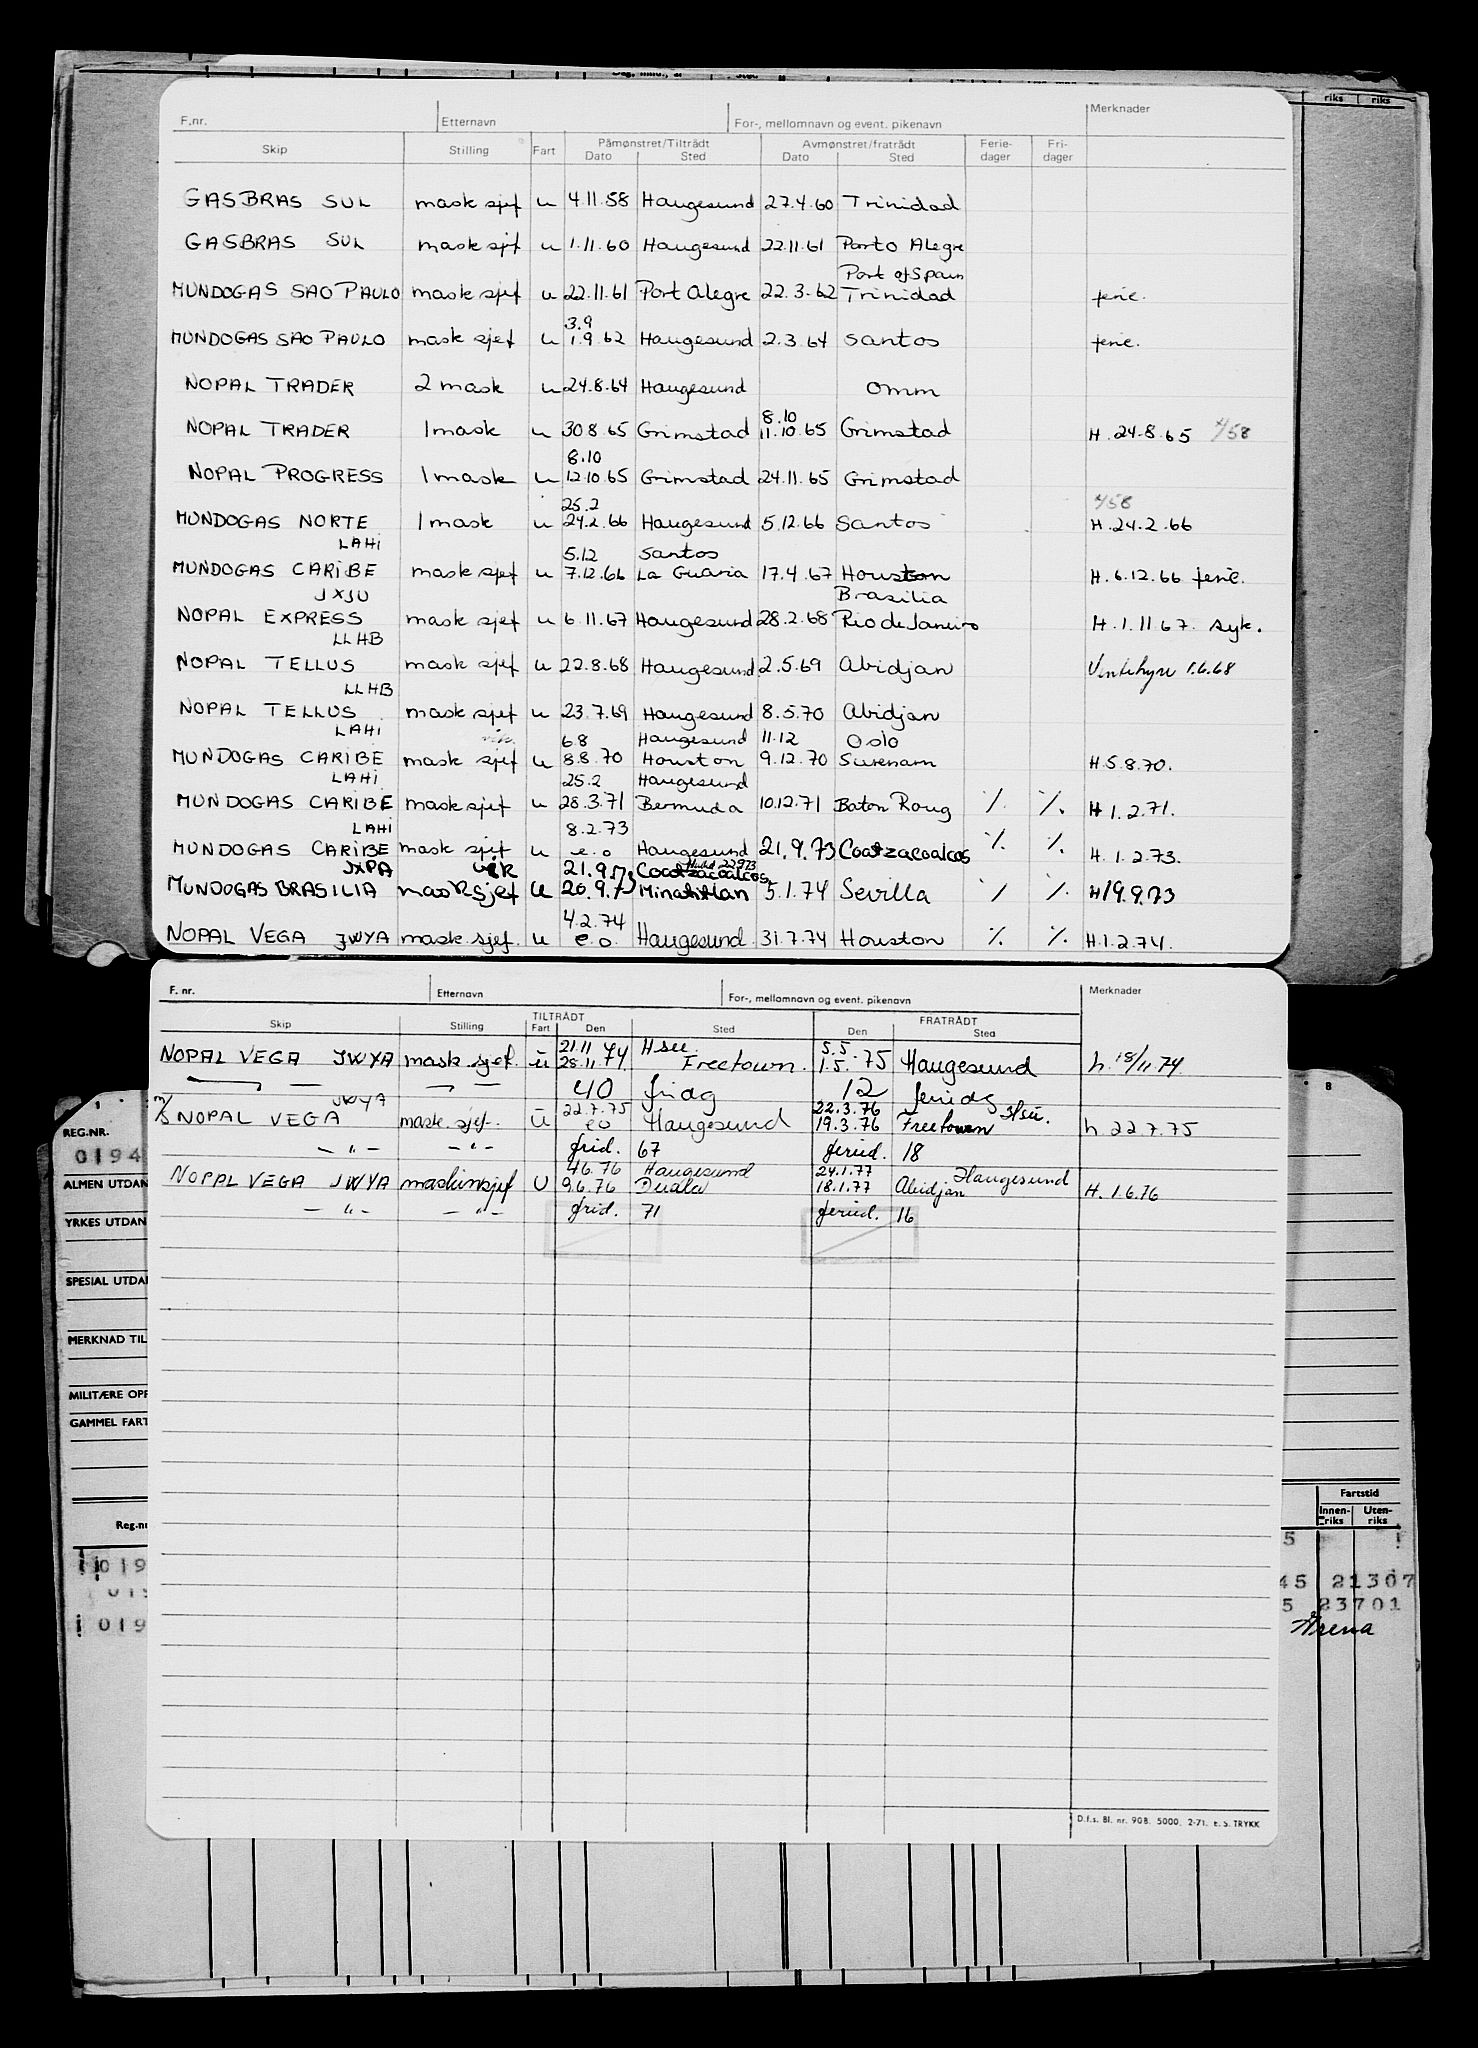 riks riks
F.nr. Etternavn For-, mellomnavn og event. pikenavn Merknader
Skip Stilling Fart Påmønstret/Tiltrådt Avmønstret/fratrådt Ferie- Fri-
Dato Sted Dato Sted dager dager
GASBRAS SUL mask sjef u 4.11.58 Haugesund 27.4.60 Trinidad
GASBRAS SUL mask sjf u 1.11.60 Haugesund 22.11.61 Porto Alegre
Port of Spain
MUNDOGAS SAO PAULO mask sjef u 22.11.61 Port Alegre 22.3.62 Trinidad ferie.
3.9
MUNDOGAS SAO PAULO mask sjef u 1.9.62 Haugesund 2.3.64 Santos ferie.
NOPAL TRADER 2 mask u 24.8.64 Haugesund Omm
8.10
NOPAL TRADER 1 mask u 30.8.65 Grimstad 11.10.65 Grimstad H. 24.8.65 4/58
8.10
NOPAL PROGRESS 1 mask u 12.10.65 Grimstad 24.11.65 Grimstad
25.2 4/58
MUNDOGAS NORTE 1 mask u 24.2.66 Haugesund 5.12.66 Santos H. 24.2.66
LAHI 5.12 Santos
MUNDOGAS CARIBE mask sjef u 7.12.66 La Guaria 17.4.67 Houston H. 6.12.66 ferie.
JXJU Brasilia
NOPAL EXPRESS mask sjef u 6.11.67 Haugesund 28.2.68 Rio de Janeiro H. 1.11.67. syk.
LLHB
NOPAL TELLUS mask sjef u 22.8.68 Haugesund 2.5.69 Abidjan Ventehyre 1.6.68
LLHB
NOPAL TELLUS mask sjef u 23.7.69 Haugesund 8.5.70 Abidjan
LAHI vik. 6.8 Haugesund 11.12 Oslo
MUNDOGAS CARIBE mask sjef u 8.8.70 Houston 9.12.70 Surenam H. 5.8.70.
LAHI 25.2 Haugesund
MUNDOGAS CARIBE mask sjef u 28.3.71 Bermuda 10.12.71 Baton Roug % % H 1.2.71.
LAHI 8.2.73
MUNDOGAS CARIBE mask sjef u e.o Haugesund 21.9.73 Coatzacoalcos % % H. 1.2.73.
JXPA vik 21.9.73 Coatzacoalcos 22.9.73
MUNDOGAS BRASILIA mask sjef u 20.9.73 Minatitlan 5.1.74 Sevilla / % H 19.9.73
4.2.74
NOPAL VEGA JWYA mask.sjef. u e.o. Haugesund. 31.7.74 Houston % % H. 1.2.74.
F. nr. Etternavn For-, mellomnavn og event. pikenavn Merknader
TILTRÅDT FRATRÅDT
Skip Stilling Fart Den Sted Den Sted
21.11 Hsu. 5.5.
NOPAL VEGA JWYA mask.sjef. ü 28.11.74 Freetown. 1.5.75 Haugesund h. 18/11.74
40 fridg 12 feridg
JWYA 22.7.75 22.3.76 Hsu.
M/S NOPAL VEGA mask. sjef. ü eo Haugesund 19.3.76 Freetown h 22.7.75
— " — — " — frid. 67 feried. 18
4.6.76 Haugesund 24.1.77 Haugesund
NOPAL VEGA JWYA maskinsjef U 9.6.76 Duala 18.1.77 Abidjan H. 1.6.76
— " — — " — frid. 71 feried. 16
D.f.s. Bl. nr. 908. 5000. 2-71. E. S. TRYKK
REG.NR.
0194
ALMEN UTDAN
YRKES UTDAN
SPESIAL UTDAN
MERKNAD TIL
MILITÆRE OPP
GAMMEL FART
Reg.nr
019
019
019
8
Fartstid
Innen- Uten-
riks riks
5
45 21307
5 23701
Arena